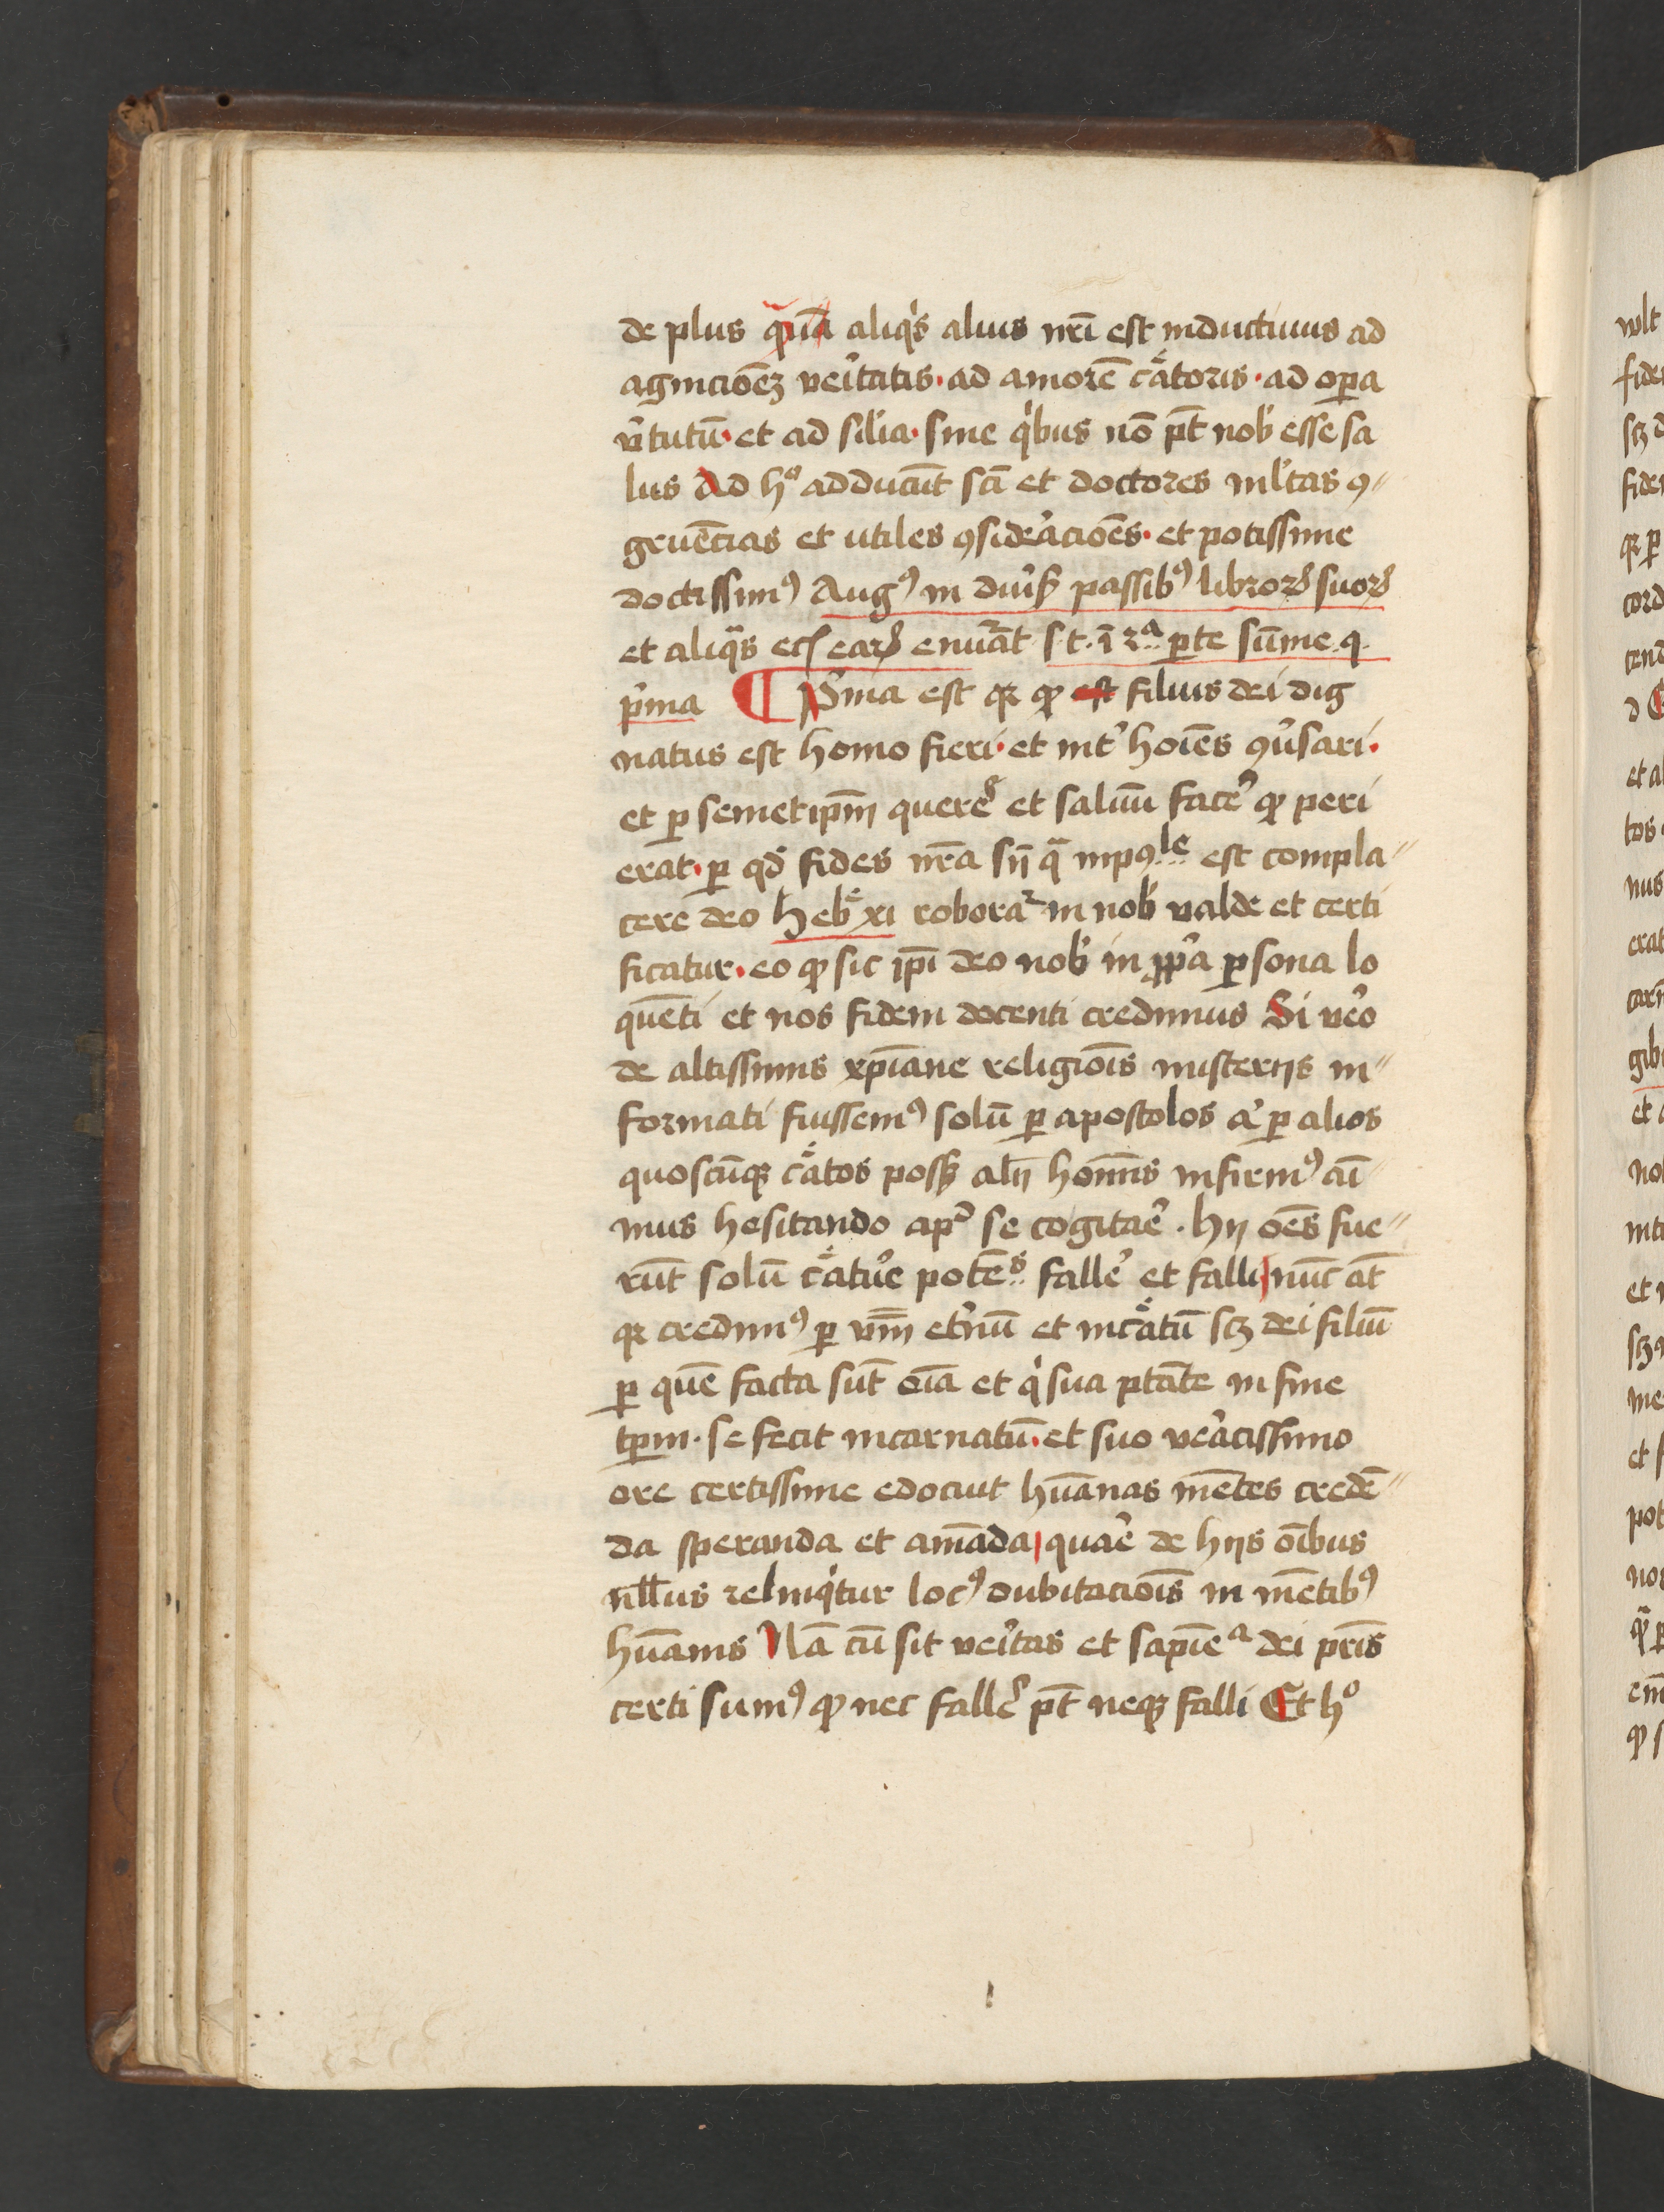 de plus qua̅ aliqͥs alius nr̅i est inductiuus ad
agnicio̅eʒ ve͛itatis · ad amore̅ cͤatoris · ad op̅a
v͛tutu̅ · et ad si̅lia · sine qͥbus no̅ pt̅ nob̾ esse sa
lus Ad hº adducu̅t sc̅i et doctores ml̾tas ꝯ〃
grue̅cias et utiles ꝯside͛acio̅es · et potissime
doctissimꝰ Augꝰ in diu͛sꝭ passibꝰ libroꝝ suoꝝ
et aliqͣs ecꝭ eaꝝ enu͛a̅t s · t · i̅ 3ª ꝑte su̅me · q ·
p͛ma ¶ P͛ma est qꝛ ꝙ est filius dei dig
natus est homo fieri · et int͛ ho̅i̅es ꝯu͛sari ·
et ꝑ semetip̅m quere͛ et saluu̅ face͛ ꝙ peri
erat · ꝑ qd̾ fides nr̅a sn̅ qͣ inpoꝯˡᵉ est compla〃
cere deo heb͛ xi roboraᷣ in nob̾ valde et certi
ficatur · eo ꝙ sic ip̅i deo nob̾ in ꝓp͛a ꝑsona lo
que̅ti et nos fidem docenti credimus Si ve͛o
de altissimis xp̅iane religio̅is misterijs in〃
formati fuissemꝰ solu̅ ꝑ apostolos a͛ ꝑ alios
quoscu̅qꝫ cͤatos possꝫ alij ho̅i̅s infirmꝰ ai̅
mus hesitando apᷣ se cogitae͛ · hij oe̅s fue〃
ru̅t solu̅ cͤatu͛e pote̅ˢ falle͛ et falli nu̅c at̅
qꝛ credimꝰ ꝑ vm̅ et͛nu̅ et incͤatu̅ scꝫ dei filiu̅
ꝑ que̅ facta su̅t oi̅a et qͥ sua ptā̅te in fine
tp̅m · se fecit incarnatu̅ · et suo ve͛acissimo
ore certissime edocuit hu̅anas me̅tes crede̅〃
da speranda et ama̅da quae͛ de hijs oi̅bus
nll̅us relinqͥtur locꝰ dubitacio̅is in me̅tibꝰ
hu̅anis Na̅ cu̅ sit ve͛itas et sapi̅eª dei pr̅is
certi sumꝰ ꝙ nec falle͛ pt̅ neqꝫ falli Et hº